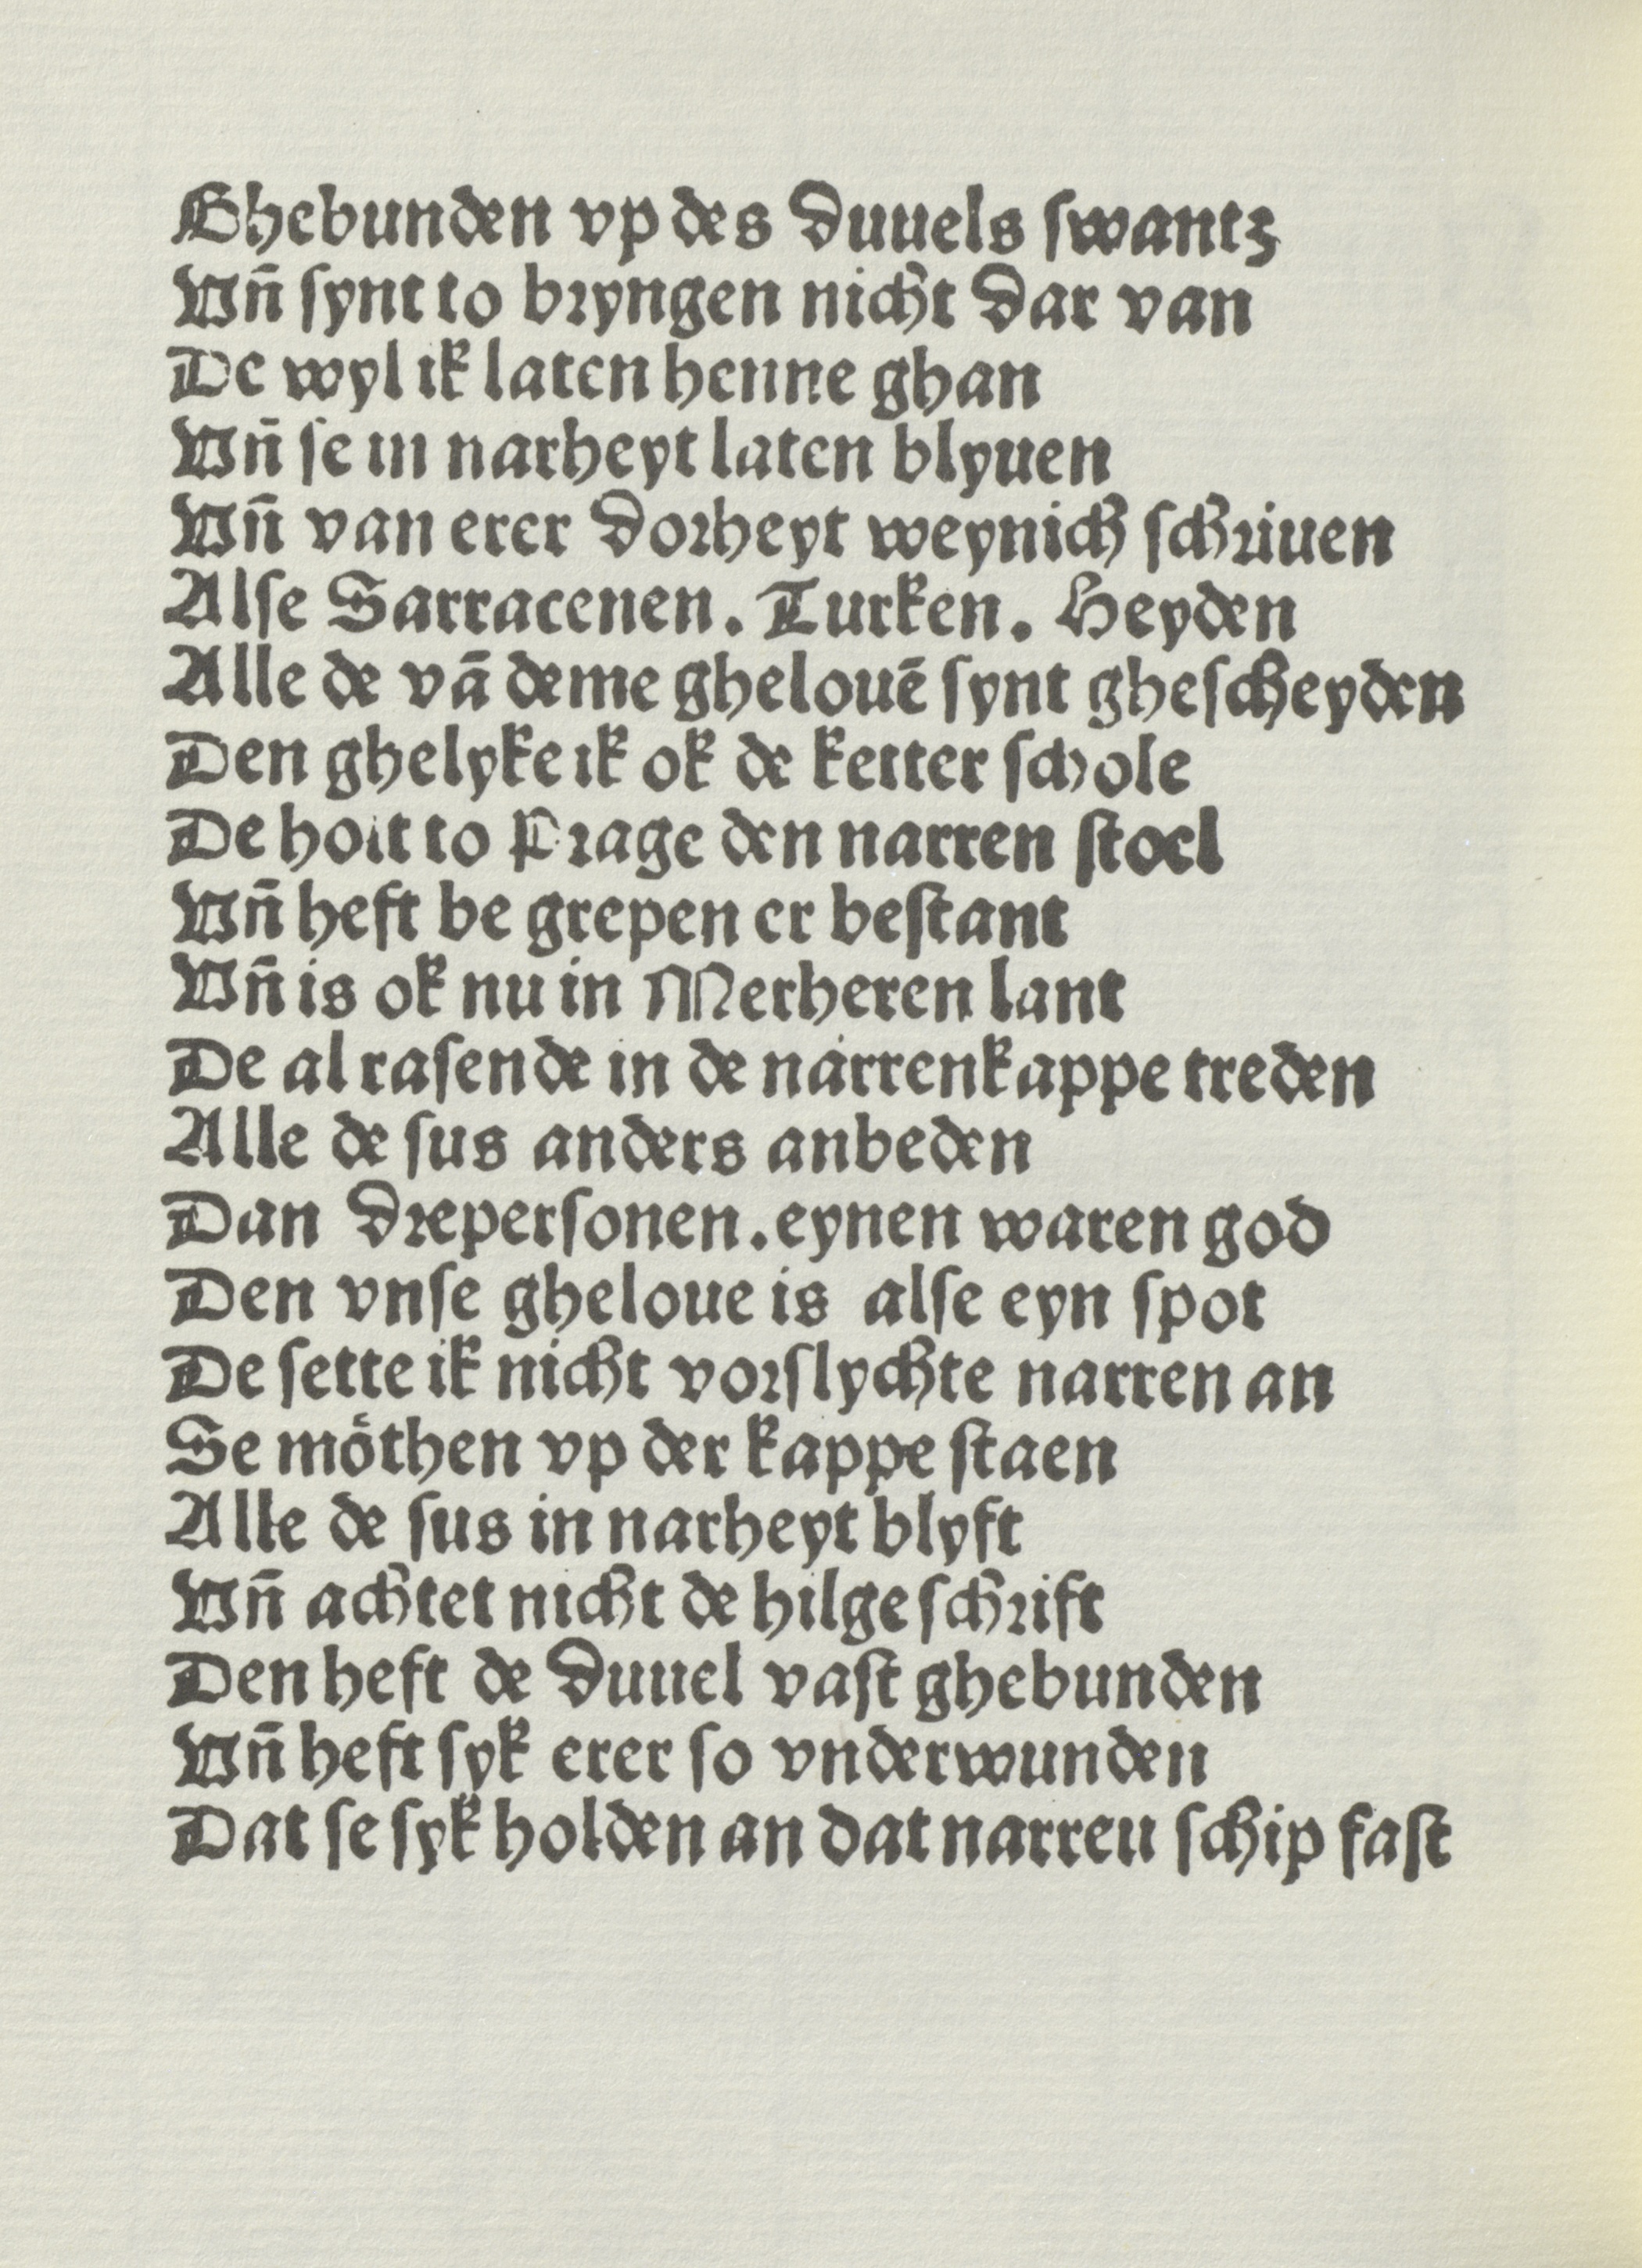 Ghebunden vp des duuels ſwantz
Vñ ſynt to bryngen nicht dar van
De wyl ik laten henne ghan
Vñ ſe in narheyt laten blyuen
Vñ van erer dorheyt weynich ſchriuen
Alſe Sarracenen. Turken. Heyden
Alle de vā deme ghelouē ſynt gheſcheyden
Den ghelyke ik ok de ketter ſchole
De hoit to Prage den narren ſtoel
Vñ heft be grepen er beſtant
Vñ is ok nu in Merheren lant
De al raſende in de narrenkappe treden
Alle de ſus anders anbeden
Dan dre perſonen. eynen waren god
Den vnſe gheloue is alſe eyn ſpot
De ſette ik nicht vor ſlychte narren an
Se moͤthen vp der kappe ſtaen
Alle de ſus in narheyt blyft
Vñ achtet nicht de hilge ſchrift
Den heft de duuel vaſt ghebunden
Vñ heft ſyk erer ſo vnderwunden
Dat ſe ſyk holden an dat narreu ſchip faſt